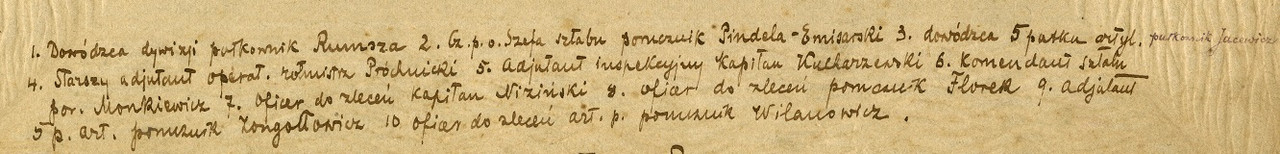 1. Dowódzca dywizji pułkownik Rumsza 2. Cz. p. o. Szefa sztabu porucznik Pindela-Emisarski 3. dowódzca 5 pułku artyl. pułkownik Jacewicz
4. Starszy adjutant operat. rotmistrz Próchnicki 5. adjutant inspekcyjny kapitan Kucharzewski 6. Komendant sztabu
por. Monkiewicz 7. Oficer do zleceń kapitan Niziński 8. oficer do zleceń porucznik Florek 9. adjutant
5 p. art. porucznik Zongołłowicz 10 oficer do zleceń art. p. porucznik Wilanowicz.